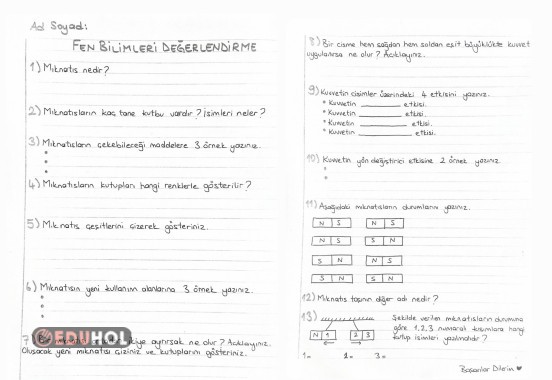 Ad Soyad:
FEN BİLİMLERİ DEĞERLENDİRME
1) Mıknatıs nedir?
2) Mıknatısların kaç tane kutbu vardır? İsimleri neler?
3) Mıknatısların çekebileceği maddelere 3 örnek yazınız.
4) Mıknatısların kutupları hangi renklerle gösterilir?
5) Mıknatıs çeşitlerini çizerek gösteriniz.
6) Mıknatısın yeni kullanım alanlarına 3 örnek yazınız.
7) ayırırsak ne olur? Açıklayınız.
Oluşacak yeni mıknatısı çiziniz ve kutuplarını gösteriniz.
EDUHOL
8) Bir cisme hem sağdan hem soldan eşit büyüklükte kuvvet
uygulanırsa ne olur? Açıklayınız.
9) Kuvvetin cisimler üzerindeki 4 etkisini yazınız.
* Kuvvetin ________ etkisi.
* Kuvvetin ________ etkisi.
* Kuvvetin ________ etkisi.
* Kuvvetin ________ etkisi.
10) Kuvvetin yön değiştirici etkisine 2 örnek yazınız.
11) Aşağıdaki mıknatısların durumlarını yazınız.
N S N S
N S S N
S N N S
S N S N
12) Mıknatıs taşının diğer adı nedir?
13) Şekilde verilen mıknatısların durumuna
N 1 2 3 göre 1,2,3 numaralı kısımlara hangi
kutup isimleri yazılmalıdır?
1= 2= 3=
Başarılar Dilerim ♥